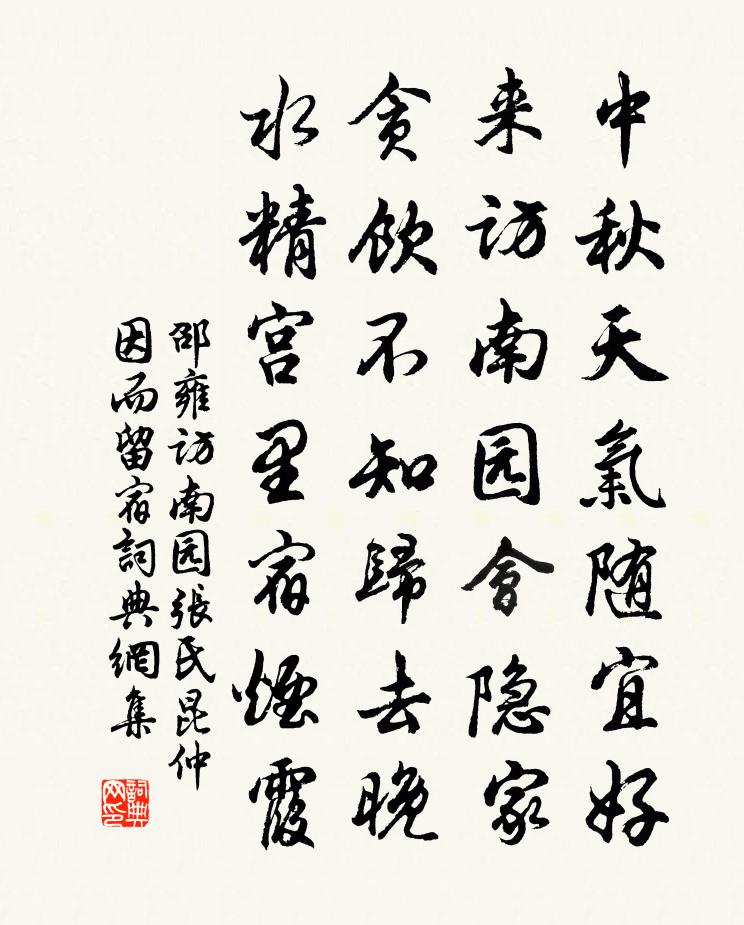 中秋天氣随宜好
来访南园會隐家
贪飲不知歸去晚
水精宫里宿煙霞
邵雍访南园張氏昆仲
因而留宿詞典網集
詞典网印